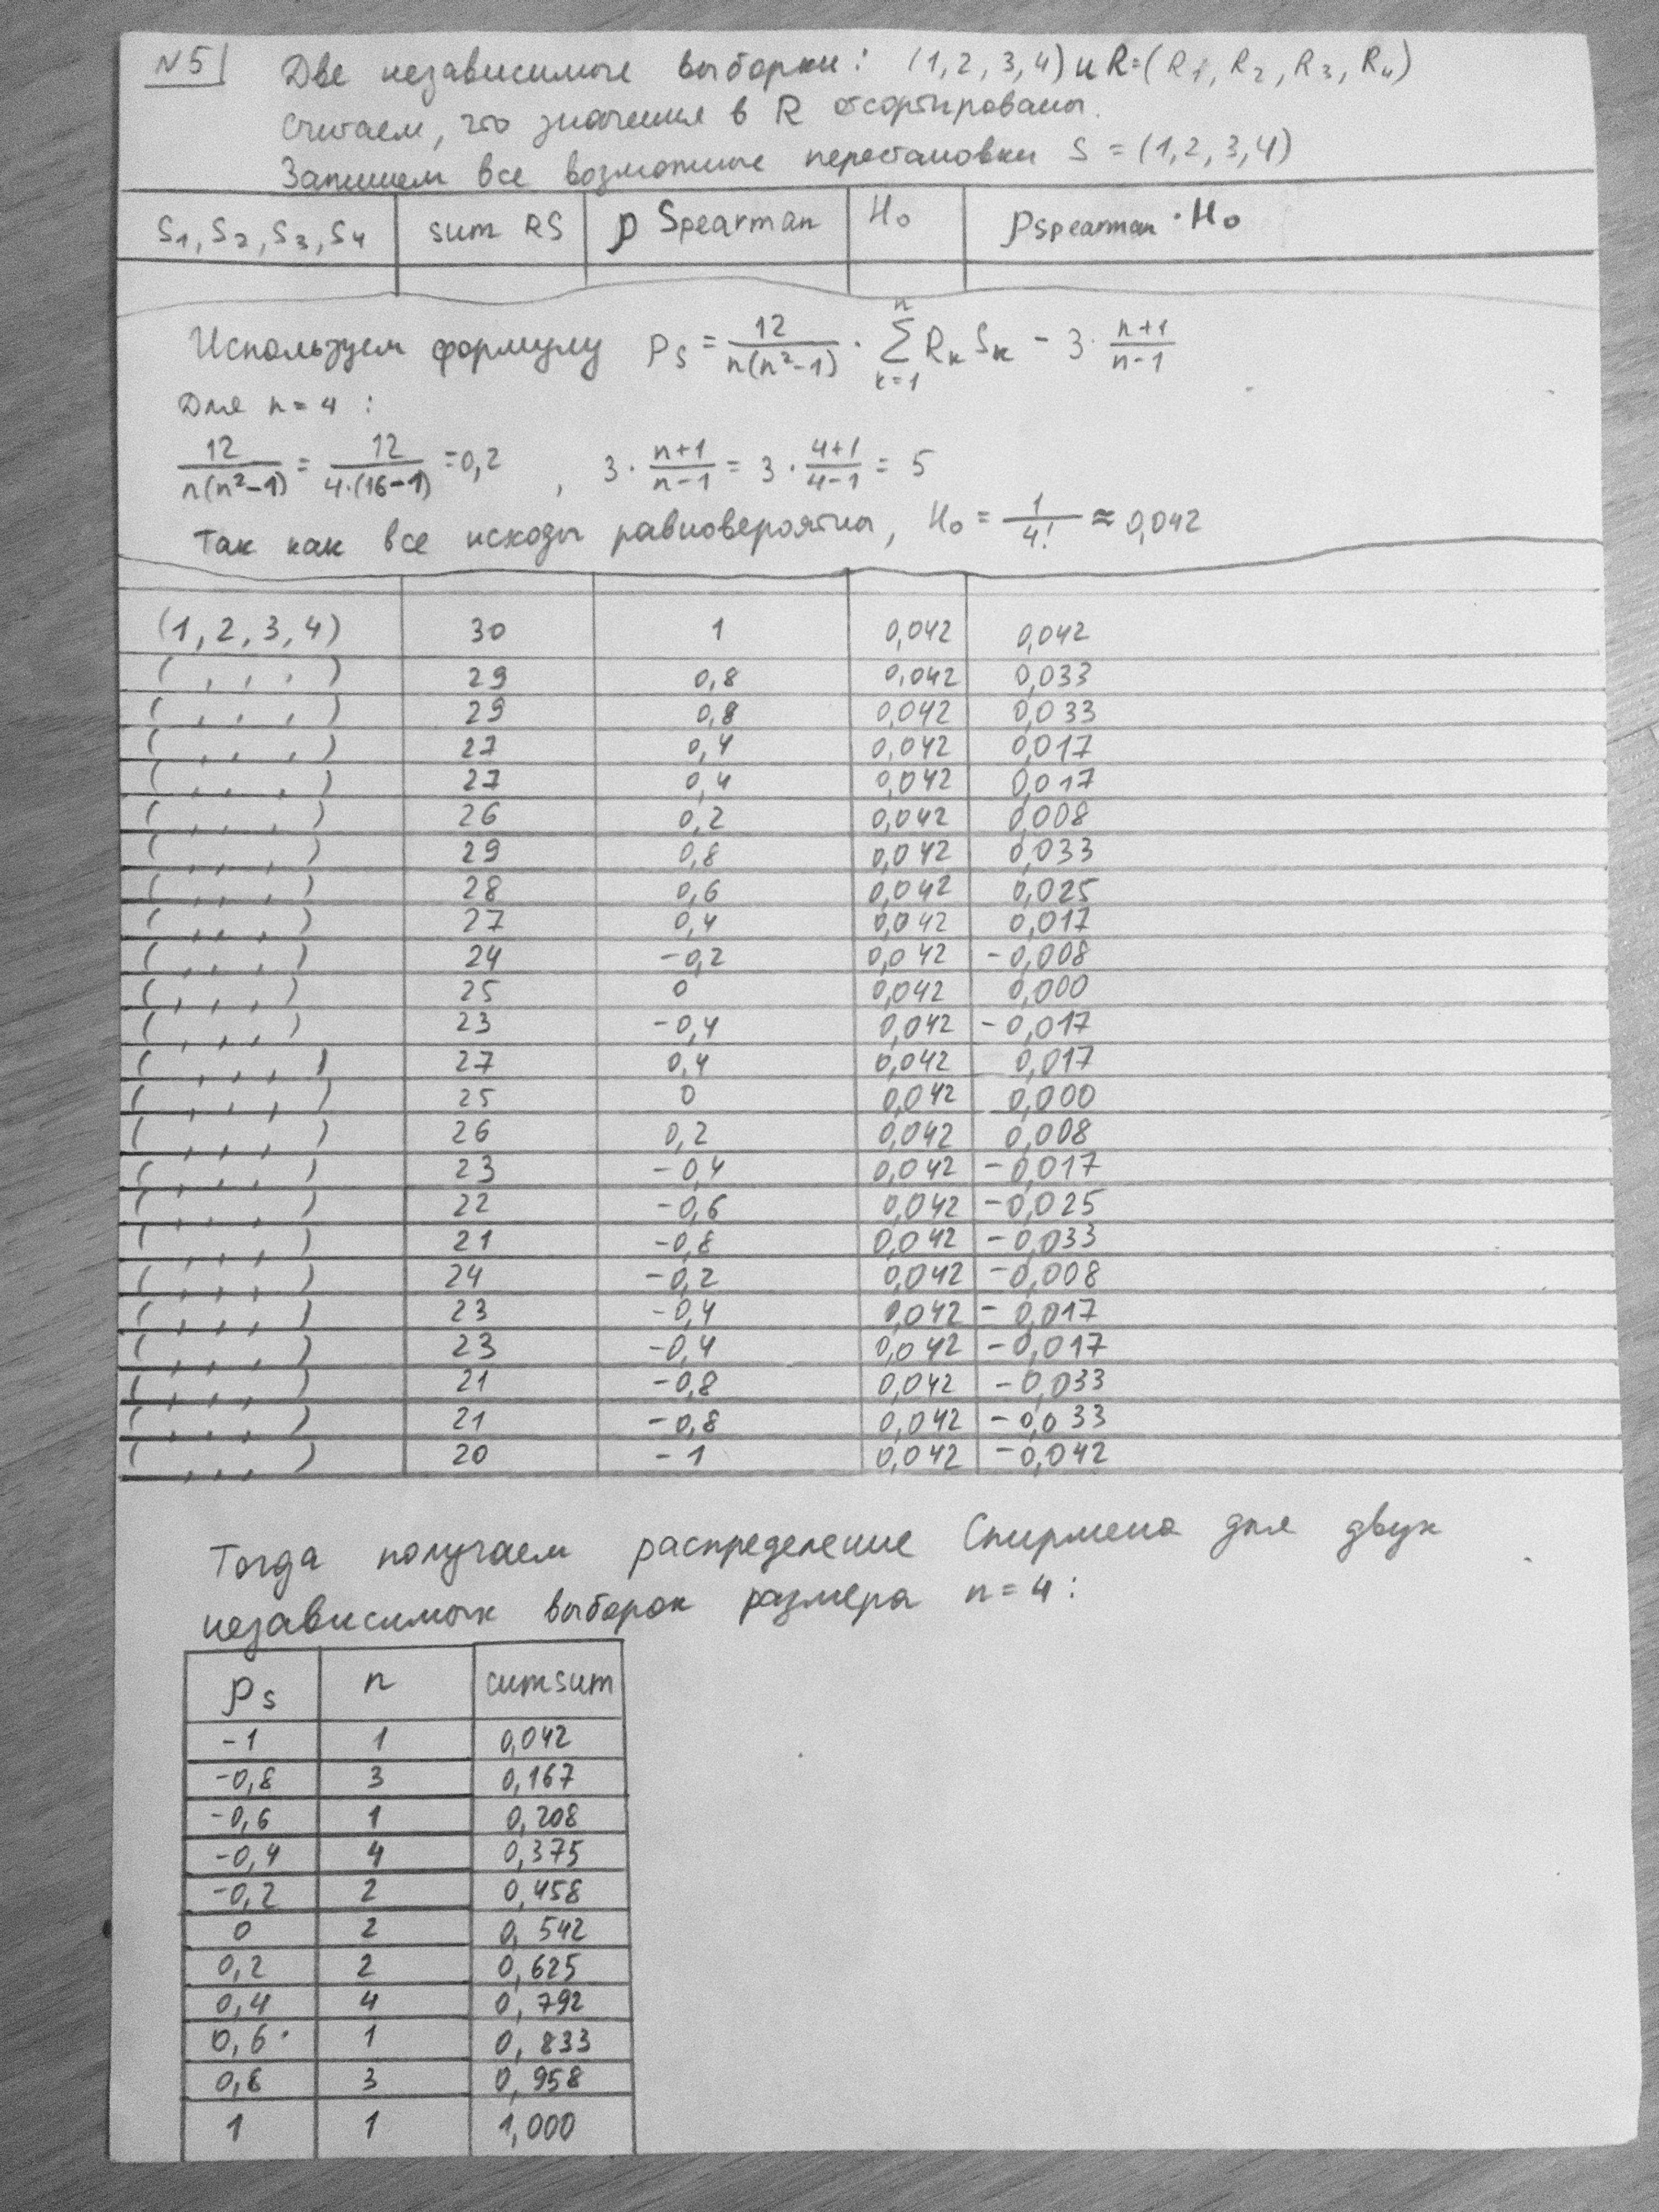 №5 Две независимые выборки: (1, 2, 3, 4) и R=(R1, R2, R3, R4)
Считаем, что значения в R отсортированы.
Запишем все возможные перестановки S = (1,2,3,4)
S1, S2, S3, S4 | sum RS | ρ Spearman | H₀ | ρspearman · H₀
Используем формулу ρs = 12/(n(n²-1)) · Σ(k=1..n) Rk Sk - 3 · (n+1)/(n-1)
Для n = 4 :
12/(n(n²-1)) = 12/(4·(16-1)) = 0,2 , 3 · (n+1)/(n-1) = 3 · (4+1)/(4-1) = 5
Так как все исходы равновероятны, H₀ = 1/4! ≈ 0,042
(1, 2, 3, 4) 30 1 0,042 0,042
( , , , ) 29 0,8 0,042 0,033
( , , , ) 29 0,8 0,042 0,033
( , , , ) 27 0,4 0,042 0,017
( , , , ) 27 0,4 0,042 0,017
( , , , ) 26 0,2 0,042 0,008
( , , , ) 29 0,8 0,042 0,033
( , , , ) 28 0,6 0,042 0,025
( , , , ) 27 0,4 0,042 0,017
( , , , ) 24 -0,2 0,042 -0,008
( , , , ) 25 0 0,042 0,000
( , , , ) 23 -0,4 0,042 -0,017
( , , , ) 27 0,4 0,042 0,017
( , , , ) 25 0 0,042 0,000
( , , , ) 26 0,2 0,042 0,008
( , , , ) 23 -0,4 0,042 -0,017
( , , , ) 22 -0,6 0,042 -0,025
( , , , ) 21 -0,8 0,042 -0,033
( , , , ) 24 -0,2 0,042 -0,008
( , , , ) 23 -0,4 0,042 -0,017
( , , , ) 23 -0,4 0,042 -0,017
( , , , ) 21 -0,8 0,042 -0,033
( , , , ) 21 -0,8 0,042 -0,033
( , , , ) 20 -1 0,042 -0,042
Тогда получаем распределение Спирмена для двух
независимых выборок размера n = 4 :
ρs n cumsum
-1 1 0,042
-0,8 3 0,167
-0,6 1 0,208
-0,4 4 0,375
-0,2 2 0,458
0 2 0,542
0,2 2 0,625
0,4 4 0,792
0,6 1 0,833
0,8 3 0,958
1 1 1,000